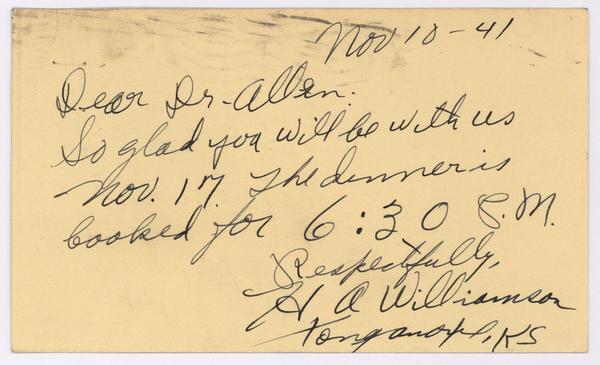 Nov 10-41
Dear Dr. Allen:
So glad you will be with us
Nov. 17. The dinner is
booked for 6:30 P.M.
Respectfully,
H A Williamson
Tonganoxie, KS